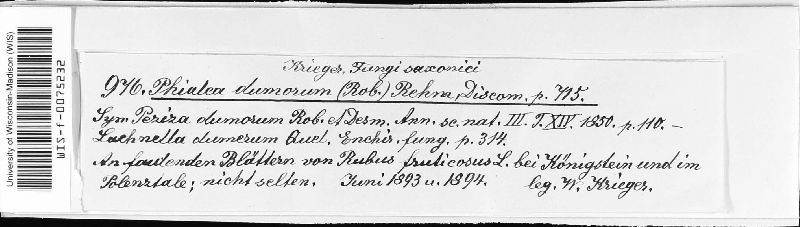 University of Wisconsin-Madison (WIS)
WIS-f-0075232
Krieger, Fungi saxonici
976. Phialea dumorum (Rob.) Rehm, Discom. p. 715.
Sym Peziza dumorum Rob. et Desm. Ann. sc. nat. III. T. XIV. 1850. p. 110. –
Lachnella dumorum Quel. Enchir. fung. p. 314.
An faulenden Blättern von Rubus fruticosus L. bei Königstein und im
Polenztale; nicht selten. Juni 1893 u. 1894. leg. W. Krieger.